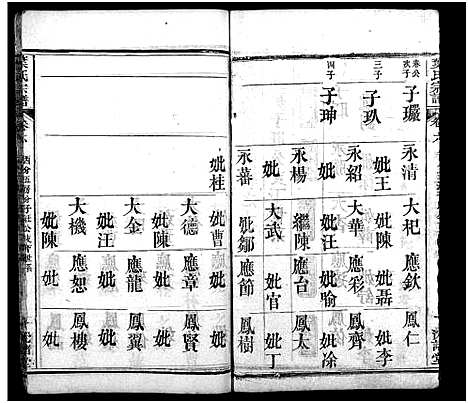 葉氏宗譜
卷公
次子
子𤩽 永清 大杞 應欽 鳳仁
妣王 妣陳 妣聶 妣李
三子
子玖 永紹 大華 應彩 鳳齊
妣 妣汪 妣喻 妣凃
四子
子珅 永楊 繼陳 應台 鳳太
妣 大武 妣官 妣丁
永蕃 妣鄒 應節 鳳樹
妣桂 妣曹 妣 妣
大德 應章 鳳賢
妣陳 妣 妣
大金 應龍 鳳翼
妣汪 妣 妣
大機 應恕 鳳樓
妣陳 妣 妣
葉氏宗譜